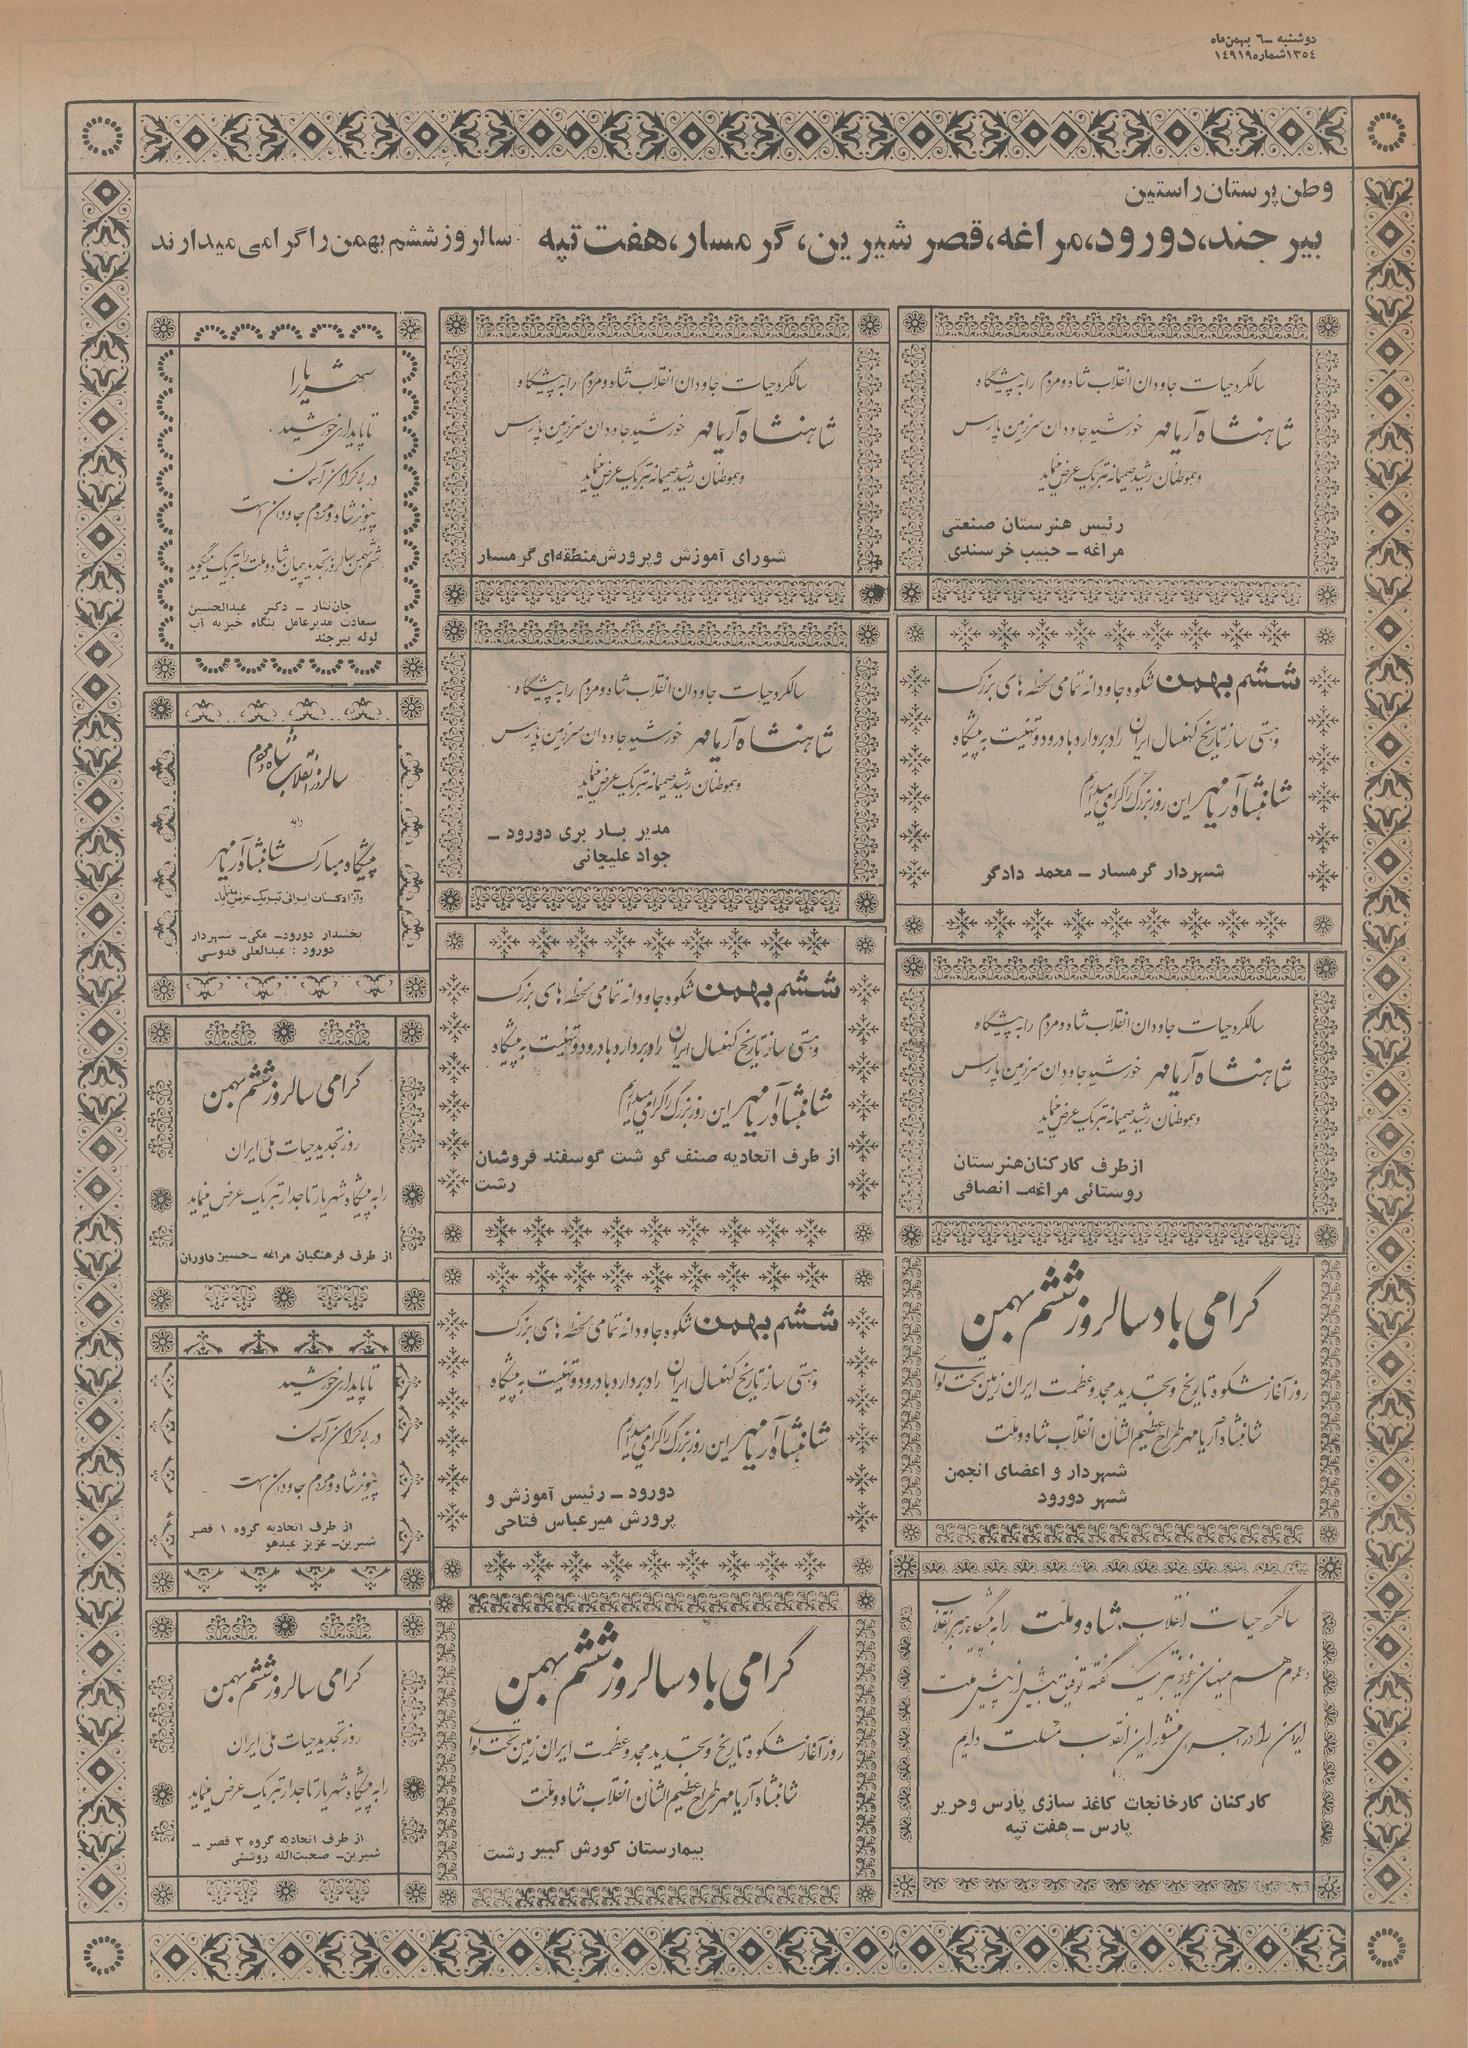 دوشنبه - ٦ بهمن ماه
١٣٥٤ شماره ١٤٩١٩
وطن پرستان راستین
بیرجند، دورود، مراغه، قصر شیرین، گرمسار، هفت تپه سالروز ششم بهمن را گرامی میدارند
سالگرد حیات جاودان انقلاب شاه و مردم را به پیشگاه
شاهنشاه آریامهر خورشید جاودان سرزمین پارس
وهموطنان رشید صمیمانه تبریک عرض مینماید
رئیس هنرستان صنعتی
مراغه - حبیب خرسندی
ششم بهمن شکوه جاودانه تمامی لحظه های بزرگ
وهستی ساز تاریخ کهنسال ایران را دربردارد با درود و تهنیت به پیشگاه
شاهنشاه آریامهر این روز بزرگ را گرامی میداریم
شهردار گرمسار - محمد دادگر
سالگرد حیات جاودان انقلاب شاه و مردم را به پیشگاه
شاهنشاه آریامهر خورشید جاودان سرزمین پارس
وهموطنان رشید صمیمانه تبریک عرض مینماید
از طرف کارکنان هنرستان
روستائی مراغه - انصافی
گرامی باد سالروز ششم بهمن
روز آغاز شکوه تاریخ و تجدید مجد و عظمت ایران زمین تحت لوای
شاهنشاه آریامهر طراح عظیم الشان انقلاب شاه و ملت
شهردار و اعضای انجمن
شهر دورود
سالگرد حیات انقلاب شاه و ملت را به پیشگاه رهبر انقلاب
وعموم هم میهنان عزیز تبریک گفته توفیق بیش از پیش ملت
ایران را در اجرای منشور این انقلاب مسئلت داریم
کارکنان کارخانجات کاغذ سازی پارس و حریر
پارس - هفت تپه
سالگرد حیات جاودان انقلاب شاه و مردم را به پیشگاه
شاهنشاه آریامهر خورشید جاودان سرزمین پارس
وهموطنان رشید صمیمانه تبریک عرض مینماید
شورای آموزش وپرورش منطقه‌ای گرمسار
سالگرد حیات جاودان انقلاب شاه و مردم را به پیشگاه
شاهنشاه آریامهر خورشید جاودان سرزمین پارس
وهموطنان رشید صمیمانه تبریک عرض مینماید
مدیر بار بری دورود -
جواد علیجانی
ششم بهمن شکوه جاودانه تمامی لحظه های بزرگ
وهستی ساز تاریخ کهنسال ایران را دربردارد با درود و تهنیت به پیشگاه
شاهنشاه آریامهر این روز بزرگ را گرامی میداریم
از طرف اتحادیه صنف گوشت گوسفند فروشان
رشت
ششم بهمن شکوه جاودانه تمامی لحظه های بزرگ
وهستی ساز تاریخ کهنسال ایران را دربردارد با درود و تهنیت به پیشگاه
شاهنشاه آریامهر این روز بزرگ را گرامی میداریم
دورود - رئیس آموزش و
پرورش میر عباس فتاحی
گرامی باد سالروز ششم بهمن
روز آغاز شکوه تاریخ و تجدید مجد و عظمت ایران زمین تحت لوای
شاهنشاه آریامهر طراح عظیم الشان انقلاب شاه و ملت
بیمارستان کورش کبیر رشت
شهریارا
تا پایداری خورشید
در بی کران آسمان
پیوند شاه و مردم جاودان است
ششم بهمن سالروز تجدید پیمان شاه و ملت را تبریک میگوید
جان نثار - دکتر عبدالحسین
سعادت مدیر عامل بنگاه خیریه آب
لوله بیرجند
سالروز انقلاب شاه و مردم
را به
پیشگاه مبارک شاهنشاه آریامهر
بخشدار دورود - مکی - شهردار
دورود : عبدالعلی قدوسی
گرامی سالروز ششم بهمن
روز تجدید حیات ملی ایران
را به پیشگاه شهریار تاجدار تبریک عرض مینماید
از طرف فرهنگیان مراغه - حسین داوران
تا پایداری خورشید
در بی کران آسمان
پیوند شاه و مردم جاودان است
از طرف اتحادیه گروه ١ قصر
شیرین - عزیز عبدهو
گرامی سالروز ششم بهمن
روز تجدید حیات ملی ایران
را به پیشگاه شهریار تاجدار تبریک عرض مینماید
از طرف اتحادیه گروه ٣ قصر -
شیرین - صحبت‌الله روشنی